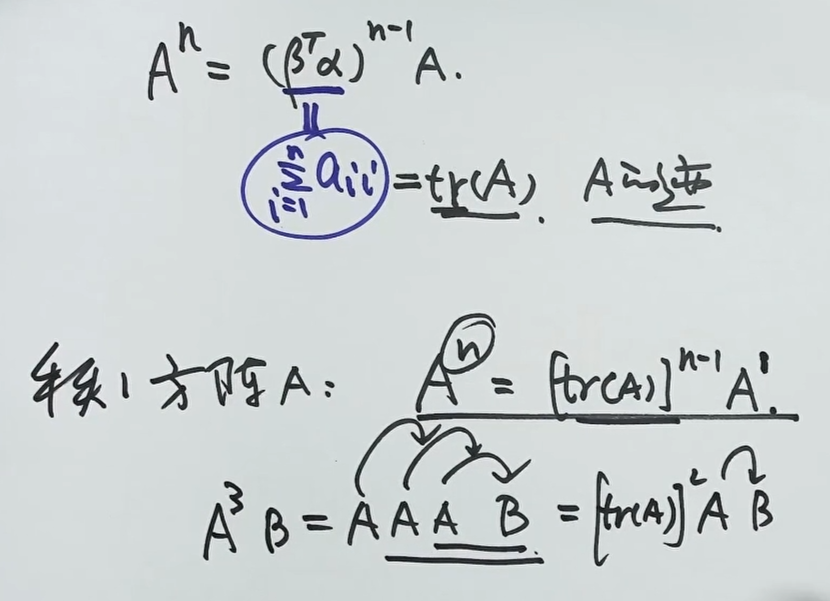 Aⁿ = (βᵀα)ⁿ⁻¹ A.
||
∑ᵢ₌₁ⁿ aᵢᵢ = tr(A). A的迹
秩1方阵A: Aⁿ = [tr(A)]ⁿ⁻¹ A¹.
A³ B = A A A B = [tr(A)]² A B